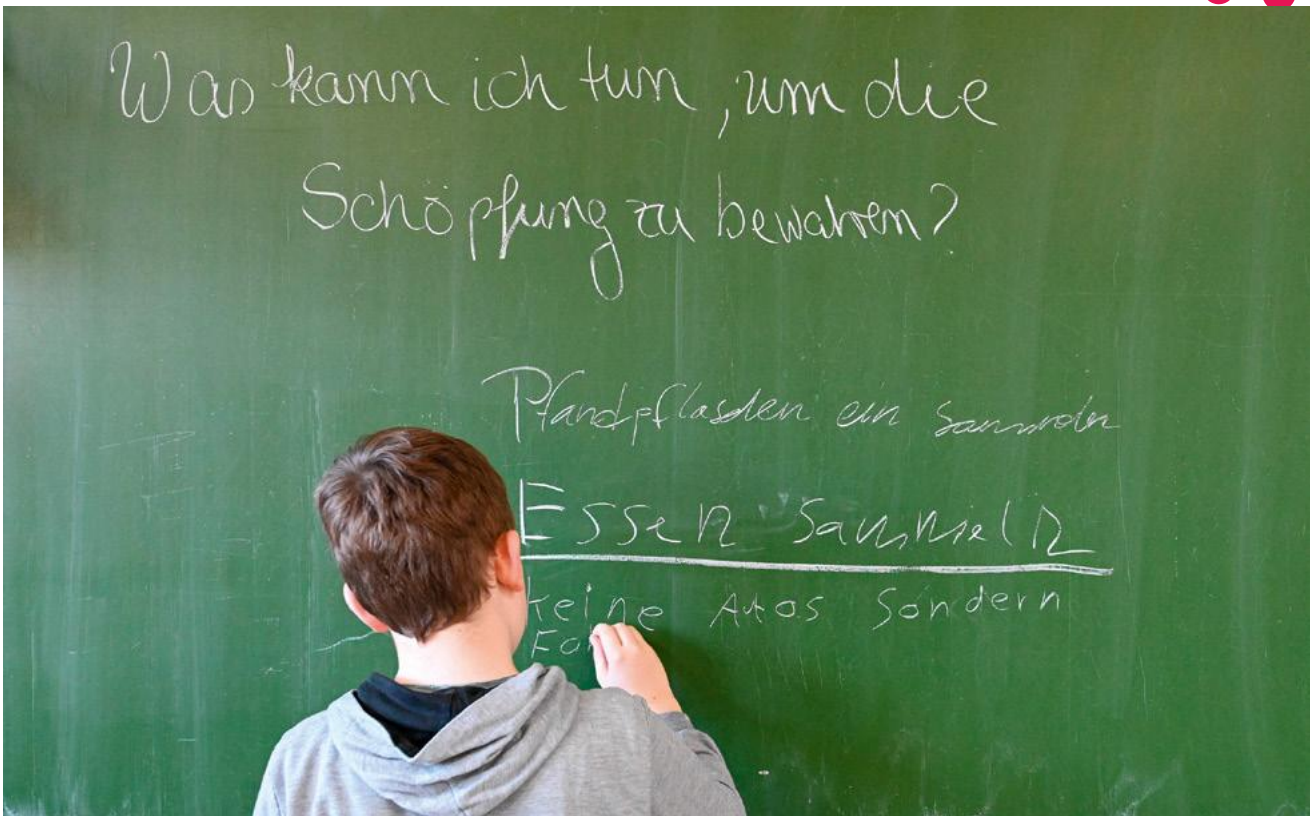 Was kann ich tun, um die
Schöpfung zu bewahren?
Pfandpflaschen ein sammeln
Essen Sammeln
keine Autos Sondern